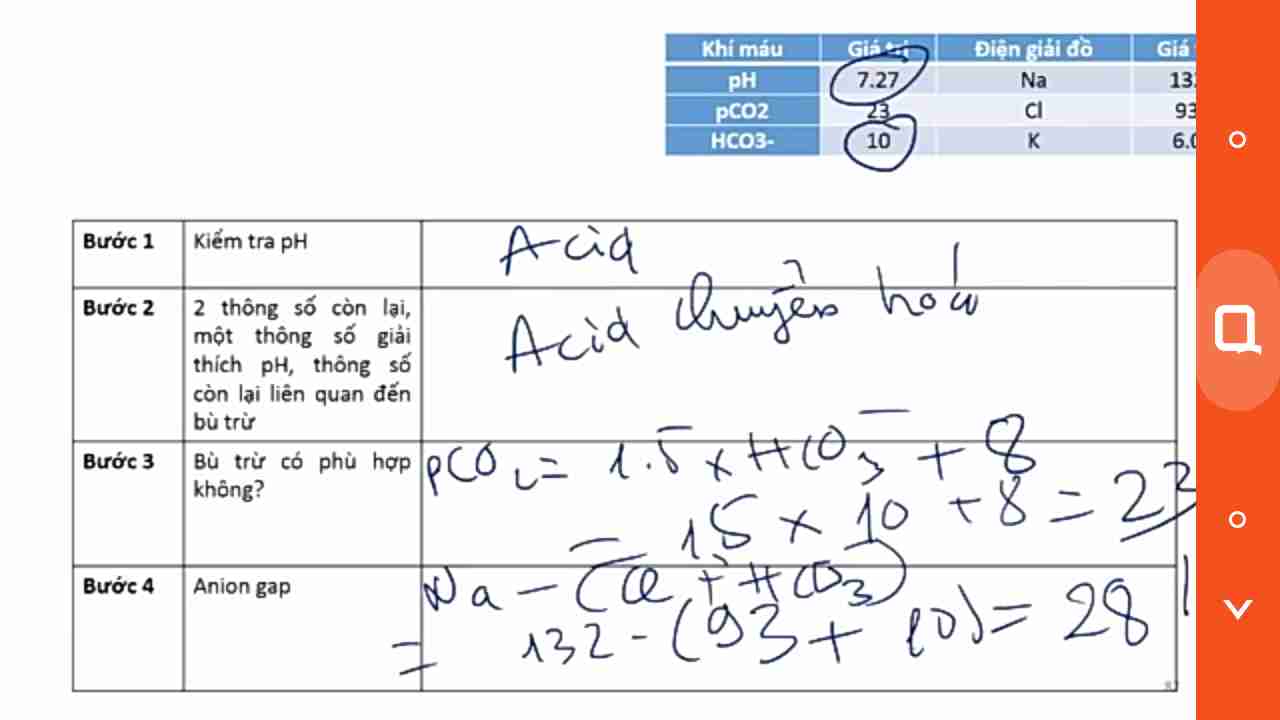 Khí máu Giá trị Điện giải đồ Giá
pH 7.27 Na 13
pCO2 23 Cl 93
HCO3- 10 K 6.0
Bước 1 Kiểm tra pH Acid
Bước 2 2 thông số còn lại, một thông số giải thích pH, thông số còn lại liên quan đến bù trừ Acid chuyển hoá
Bước 3 Bù trừ có phù hợp không? pCO2 = 1.5 x HCO3- + 8
= 15 x 10 + 8 = 23
Bước 4 Anion gap Na - (Cl + HCO3)
= 132 - (93 + 10) = 28